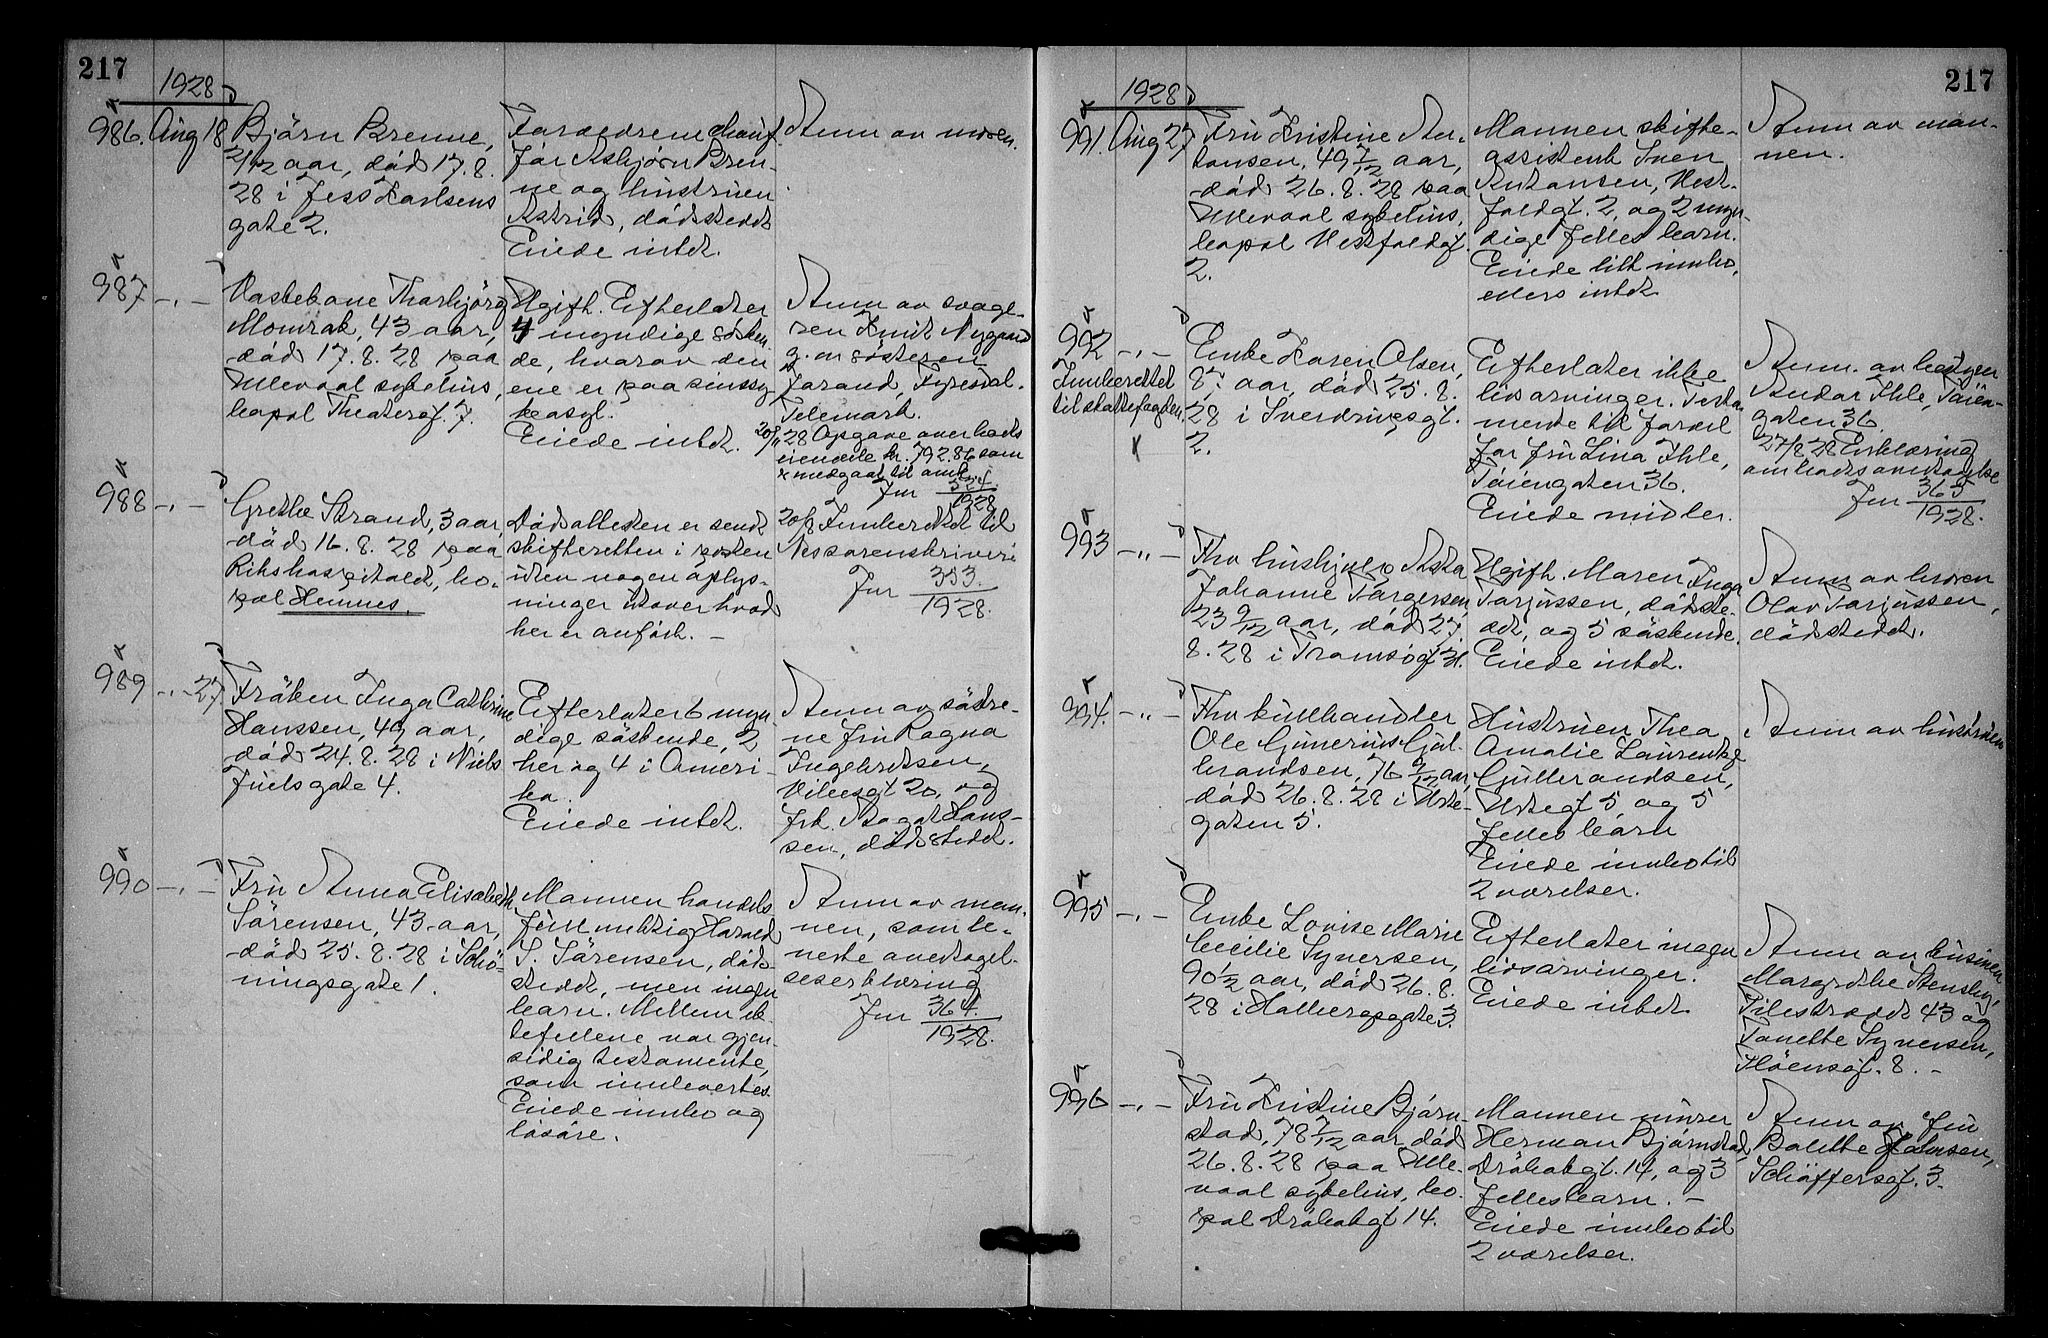 217
1928
986. Aug 18
Bjørn Brenne,
2/12 aar, død 17.8.
28 i Jess Karlsens
gate 2.
Forældrene chauf-
før Asbjørn Bren-
ne og hustruen
Astrid, dødsstedet
Eiede intet.
Anm av moren.
987 -"-
Vaskekone Thorbjørg
Momrak, 43 aar,
død 17.8.28 paa
Ullevaal sykehus,
bopæl Theatergt. 7.
Ugift. Efterlater
4 myndige søsken-
de, hvorav den
ene er paa sinssy-
keasyl.
Eiede intet.
Anm av svoge-
ren Knut Nygaard
g. m søsteren
Jorand, Fyresdal.
Telemark.
20/11 28 Opgave over boets
eiendele kr. 792.86 som
er medgaat til
Jnr 324/1928
988 -"-
Grethe Strand, 3 aar,
død 16.8.28 paa
Rikshospitalet, bo-
pæl Hemnes.
Dødsattesten er sendt
skifteretten i posten
uten nogen oplys-
ninger utover hvad
her er anført. -
20/8 Innberettet til
Nes sorenskriveri
Jnr 353./1928.
989 -"- 27.
Frøken Inga Cathrine
Hanssen, 49 aar,
død 24.8.28 i Niels
Juels gate 4.
Efterlater 6 myn-
dige søskende, 2
her og 4 i Ameri-
ka.
Eiede intet.
Anm av søstre-
ne fru Ragna
Ingebretsen,
Vibesgt 20, og
frk. Aagot Hans-
sen, dødsstedet.
990 -"-
Fru Anna Elisabeth
Sørensen, 43 aar,
død 25.8.28 i Schø-
ningsgate 1.
Mannen handels
fullmektig Harald
S. Sørensen, døds-
stedet, men ingen
barn. Mellem ek-
tefellene var gjen-
sidig testamente,
som innlevertes.
Eiede innbo og
løsøre.
Anm av man-
nen, som le-
verte overtagel-
seserklæring
Jnr 364./1928.
217
1928
991. Aug 27
Fru Kristine An-
tonsen, 49 7/12 aar,
død 26.8.28 paa
Ullevaal sykehus,
bopæl Vestfoldgt.
2.
Mannen skifte-
assistent Sven
Antonsen, Vest-
foldgt. 2, og 2 myn-
dige felles barn.
Eiede litt innbo,
ellers intet
Anm av man-
nen.
992 -"-
Innberettet
til skattefogden.
Enke Karen Olsen,
aar, død 25.8.
28 i Sverdrupsgt.
2.
Efterlater ikke
livsarvinger. Testa-
mente til fordel
for fru Lina Ihle,
Tøiengaten 36.
Eiede midler.
Anm. av
Ihle, Tøien-
gaten 36.
27/8 28 Erklæring
om boets overtagelse
Jnr 365/1928.
993 -"-
Fhv hushjelp Asta
Johanne Torgersen
23 9/12 aar, død 27.
8.28 i Tromsøgt
Ugift. Moren Inga
Torjussen, dødsste-
det, og 5 søskende.
Eiede intet.
Anm av broren
Olav Torjussen,
dødsstedet.
994. -"-
Fhv kullhandler
Ole Gunerius Gul-
brandsen, 76 9/12 aar,
død 26.8.28 i Urte-
gaten 5.
Hustruen Thea
Amalie Laurentze
Gulbrandsen,
Urtegt 5 og 5
felles barn
Eiede innbo til
2 værelser.
Anm av hustruen
995 -"-
Enke Lovise Marie
Cecilie Syversen,
90 1/2 aar, død 26.8.
28 i Hallingsgate 3.
Efterlater ingen
livsarvinger.
Eiede intet
Anm av kusinen
Margrethe Stensby,
Pilestrædet 43 og
Tanette Syversen,
-
996 -"-
Fru Kristine Bjørn-
stad, 78 7/12 aar, død
26.8.28 paa Ulle-
vaal sykehus, bo-
pæl Drøbakgt 14.
Mannen murer
Herman Bjørnstad,
Drøbakgt. 14, og 3
felles barn. -
Eiede innbo til
2 værelser.
Anm av fru
Bolette Holmsen,
Schæffersgt. 3.